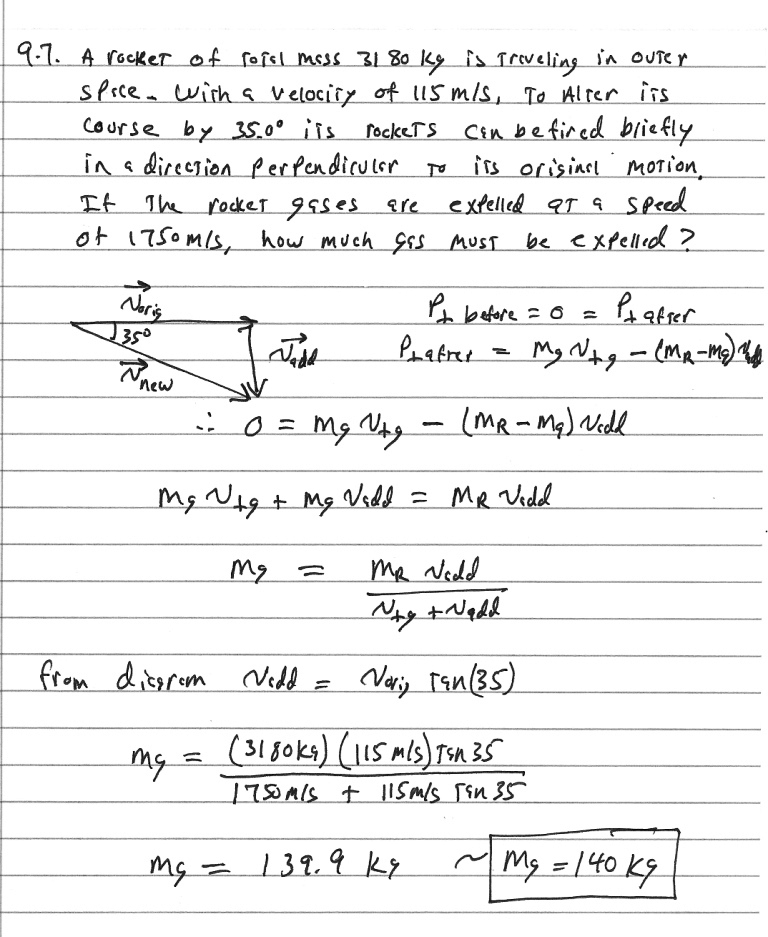 9.7. A rocket of total mass 3180 kg is traveling in outer
space. With a velocity of 115 m/s, To Alter its
course by 35.0° its rockets can be fired briefly
in a direction perpendicular to its original motion.
If The rocket gases are expelled at a speed
of 1750 m/s, how much gas must be expelled?
V⃗orig
P⊥ before = 0 = P⊥ after
35°
V⃗add
P⊥ after = Mg V⊥g − (MR−Mg) Vadd
V⃗new
∴ 0 = Mg V⊥g − (MR − Mg) Vadd
Mg V⊥g + Mg Vadd = MR Vadd
Mg = MR Vadd
V⊥g + Vadd
from diagram Vadd = Vorig Tan(35)
Mg = (3180kg) (115 m/s) Tan 35
1750 m/s + 115 m/s Tan 35
Mg = 139.9 kg ~ Mg = 140 kg